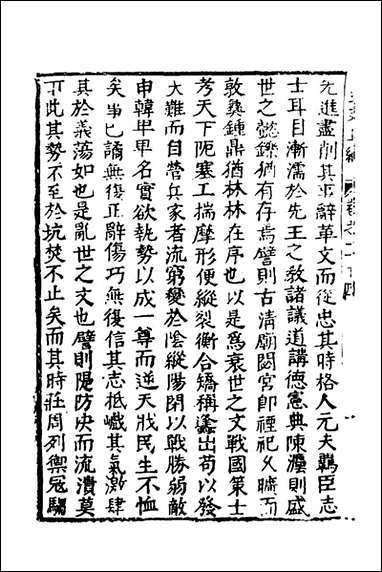 先進盡削其事辭華文而從忠其時格人元夫羈臣志
士耳目漸濡於先王之敎諸議道講德憲典陳灋則盛
世之懿鑠猶有存焉譬則古清廟閟宮郎禋祀乆曠而
敦彝鍾鼎猶林林在序也以是爲衰世之文戰國策士
考天下阨塞工揣摩形便縱裂衡合矯稱蠭出苟以發
大難而自營兵家者流窮變於陰縱陽閉以戰勝弱敵
申韓卑卑名實欲執勢以成一尊而逆天戕民生不恤
矣事已譎無復正辭傷巧無復信其志抵巇其氣激肆
其於義蕩如也是亂世之文也譬則隄防決而流潰莫
此其勢不至於坑焚不止矣而其時莊周列禦冦騶